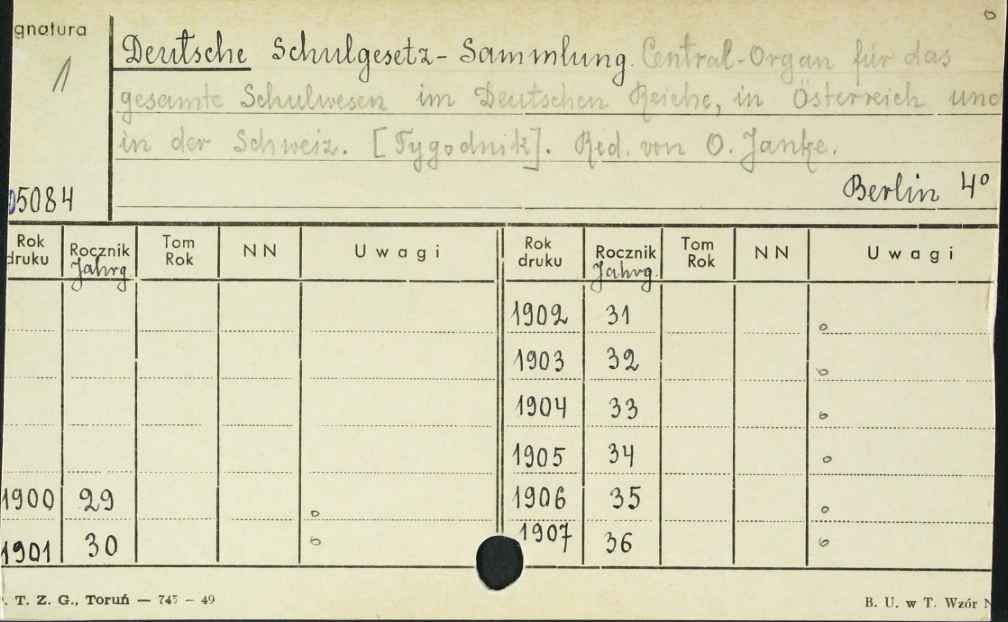 gnatura
1
Deutsche Schulgesetz-Sammlung. Central-Organ für das
gesamte Schulwesen im Deutschen Reiche, in Österreich und
in der Schweiz. [Tygodnik]. Red. von O. Janke.
05084
Berlin 4°
Rok druku Rocznik Jahrg. Tom Rok NN Uwagi Rok druku Rocznik Jahrg. Tom Rok NN Uwagi
1902 31 o
1903 32 o
1904 33 o
1905 34 o
1900 29 o 1906 35 o
1901 30 o 1907 36 o
. T. Z. G., Toruń — 745 – 49
B. U. w T. Wzór N